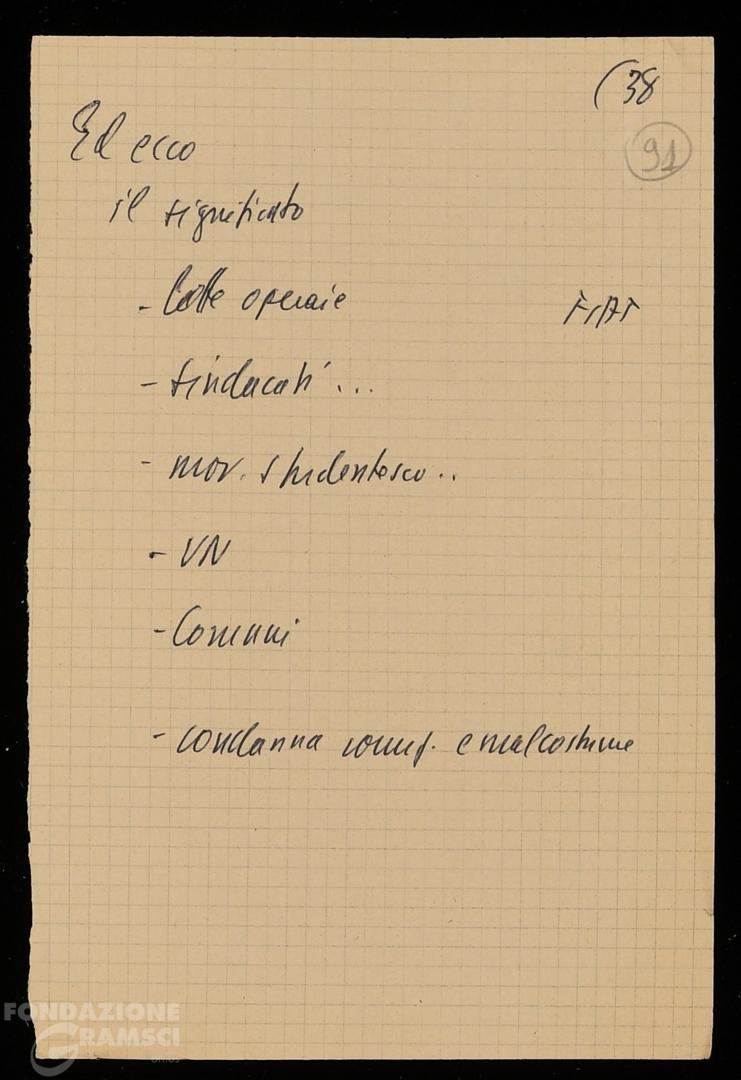 (38
91
Ed ecco
il significato
- lotte operaie FIAT
- sindacati ...
- mov. studentesco ..
- VN
- Comuni
- condanna e malcostume
FONDAZIONE
GRAMSCI
onlus